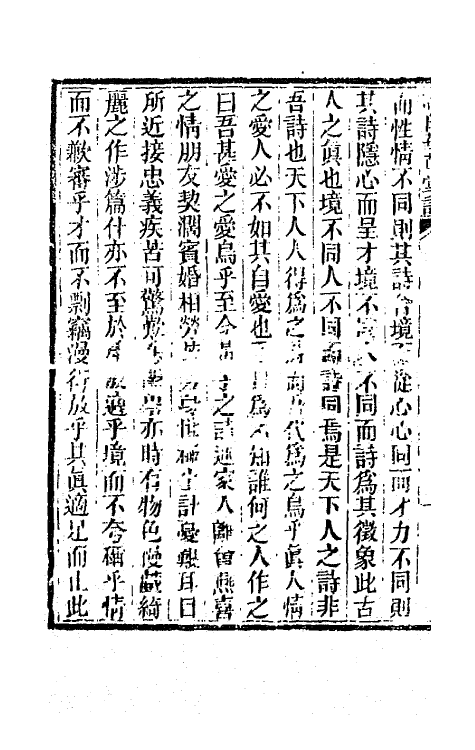 而性情不同則其詩境從心心同而才力不同則
其詩隱心而呈才境不人不同而詩爲其徵象此古
人之眞也境不同人不同而詩同焉是天下人之詩非
吾詩也天下人人得爲之而代爲之烏乎眞人情
之愛人必不如其自愛也爲人知誰何之人作之
曰吾甚愛之愛烏乎至今之詩述家人離曾燕喜
之情朋友契濶賓婚相勞生計憂襍耳目
所近接忠義疾苦可驚歎亦時有物色慢藏綺
麗之作涉篇什亦不至於適乎境而不夸稱乎情
而不歉審乎才而不剽竊漫衍放乎其眞適足而止此